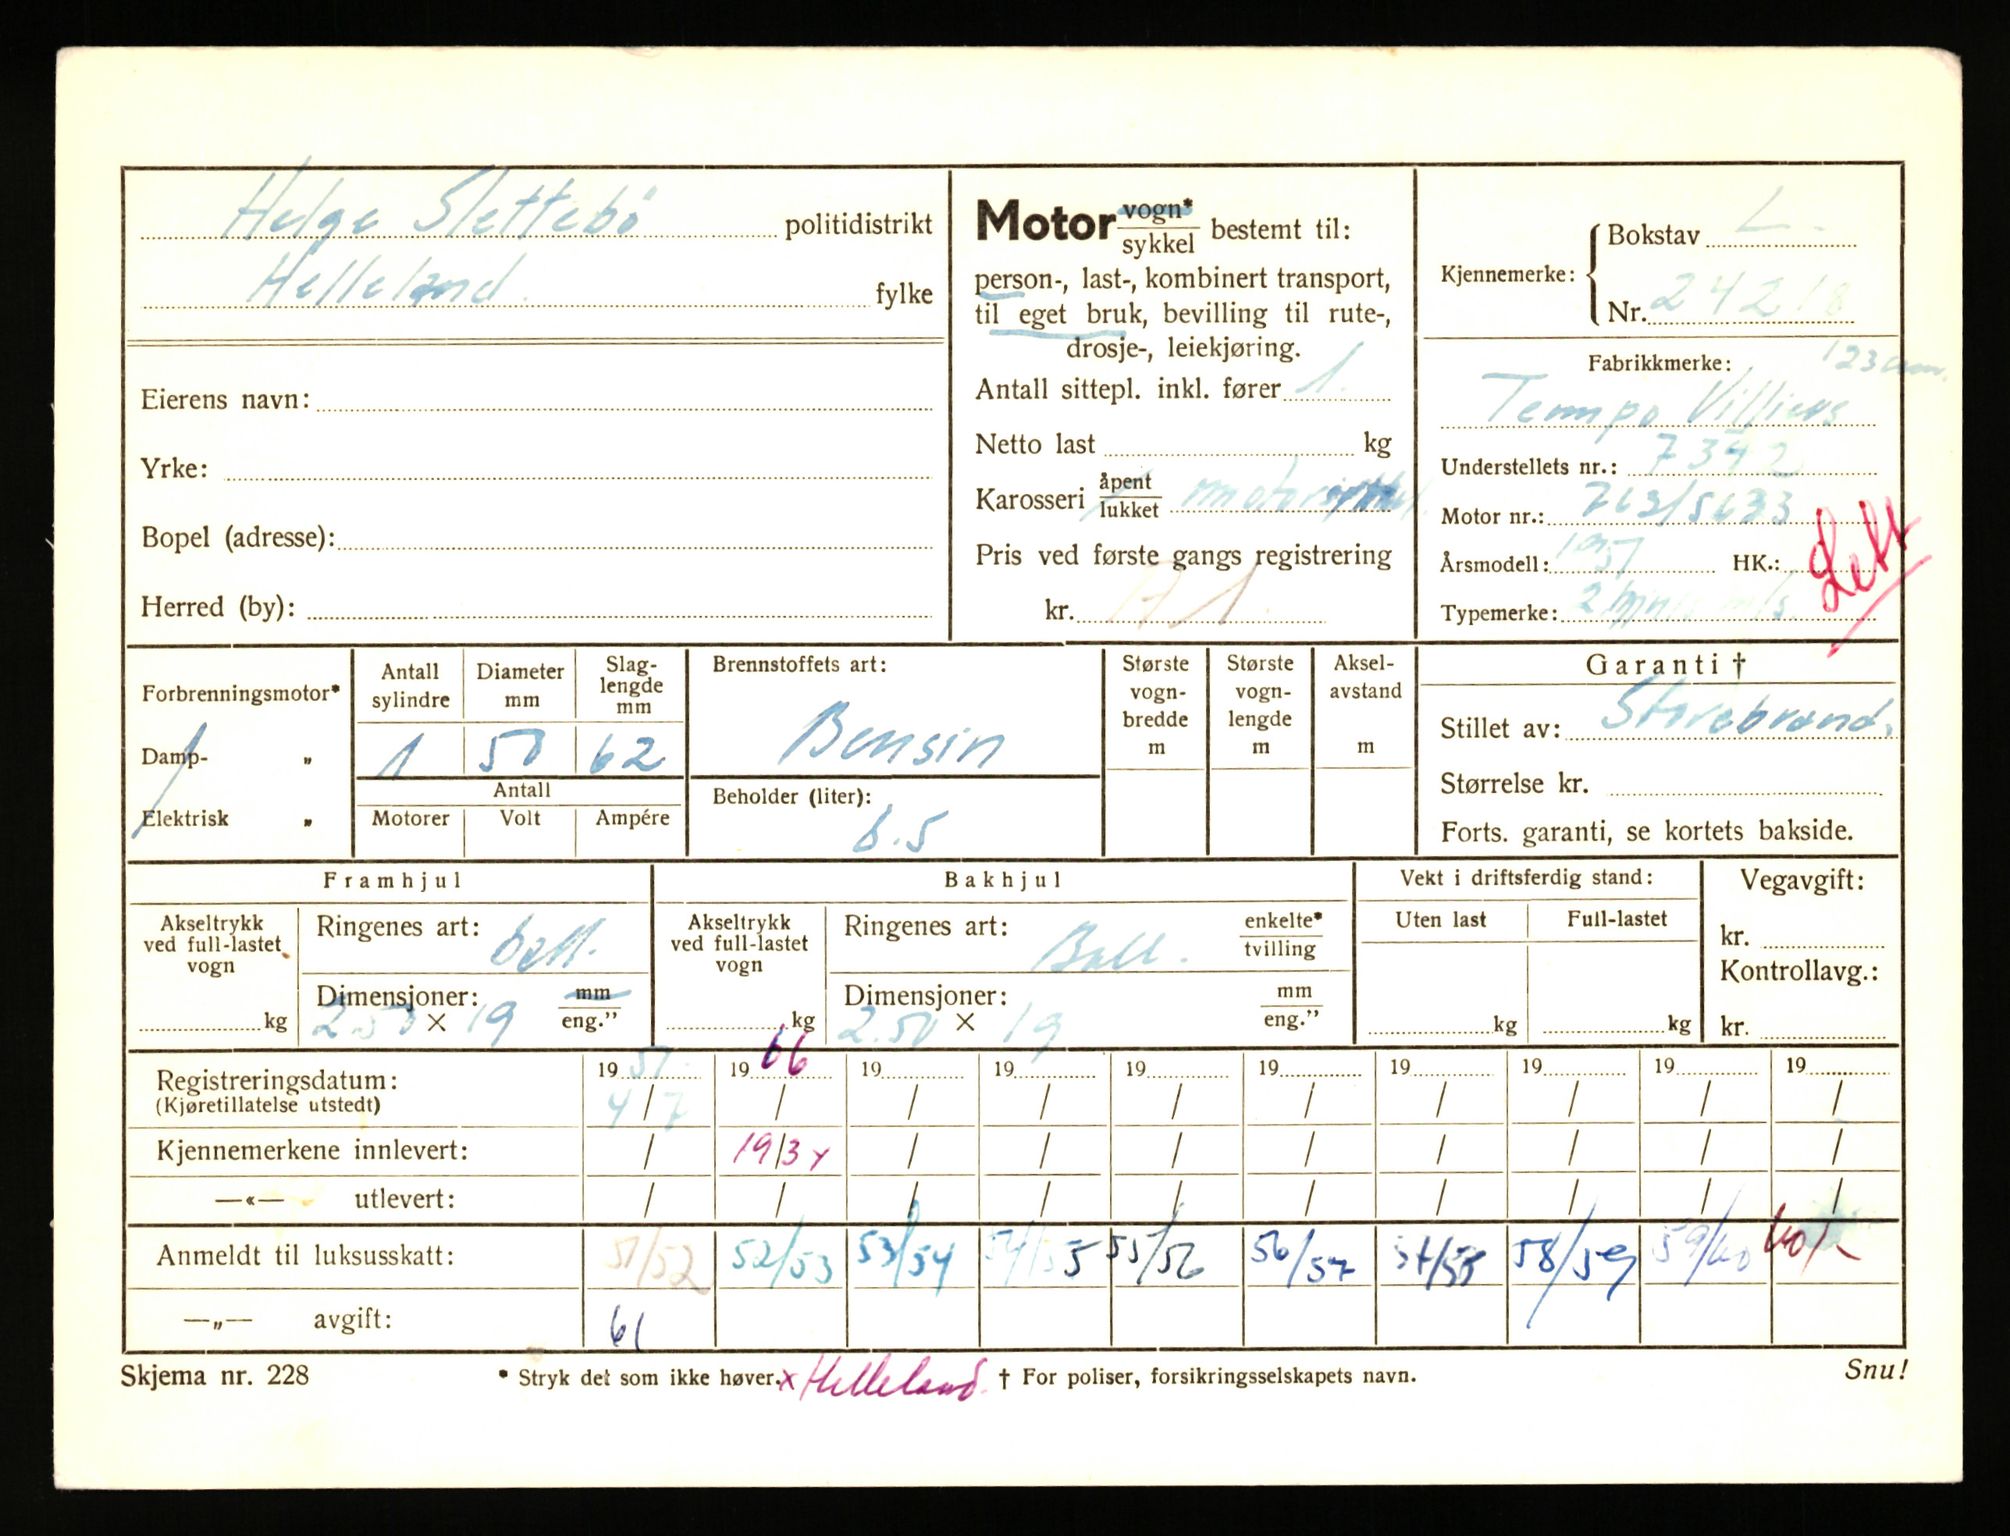 Helge Slettebö politidistrikt
Helleland fylke
Eierens navn:
Yrke:
Bopel (adresse):
Herred (by):
Motor vogn* / sykkel bestemt til:
person-, last-, kombinert transport,
til eget bruk, bevilling til rute-,
drosje-, leiekjøring.
Antall sittepl. inkl. fører 1.
Netto last kg
Karosseri åpent / lukket motorsykkel
Pris ved første gangs registrering
kr.
Kjennemerke:
Bokstav L.
Nr. 24218
Fabrikkmerke: 123 ccm.
Tempo Villiers
Understellets nr.: 7342
Motor nr.: 763/5633
Årsmodell: 1951 HK.:
Typemerke:
Lett
Forbrenningsmotor*
Damp- „
Elektrisk „
Antall sylindre 1
Diameter mm 50
Slag-lengde mm 62
Antall
Motorer Volt Ampére
Brennstoffets art:
Bensin
Beholder (liter):
6.5
Største vogn-bredde m
Største vogn-lengde m
Aksel-avstand m
Garanti †
Stillet av: Storebrand.
Størrelse kr.
Forts. garanti, se kortets bakside.
Framhjul
Akseltrykk ved full-lastet vogn
kg
Ringenes art: ball.
Dimensjoner: mm / eng.”
2.50 × 19
Bakhjul
Akseltrykk ved full-lastet vogn
kg
Ringenes art: Ball. enkelte* / tvilling
Dimensjoner: mm / eng.”
2.50 × 19
Vekt i driftsferdig stand:
Uten last Full-lastet
kg kg
Vegavgift:
kr.
Kontrollavg.:
kr.
Registreringsdatum: 19 51. 19 66 19 19 19 19 19 19 19 19
(Kjøretillatelse utstedt) 4/7 / / / / / / / / /
Kjennemerkene innlevert: / 19/3 x / / / / / / / /
—«— utlevert: / / / / / / / / / /
Anmeldt til luksusskatt: 51/52 52/53 53/54 54/55 55/56 56/57 57/58 58/59 59/60 60/
—„— avgift: 61
Skjema nr. 228 * Stryk det som ikke høver. x Helleland. † For poliser, forsikringsselskapets navn. Snu!